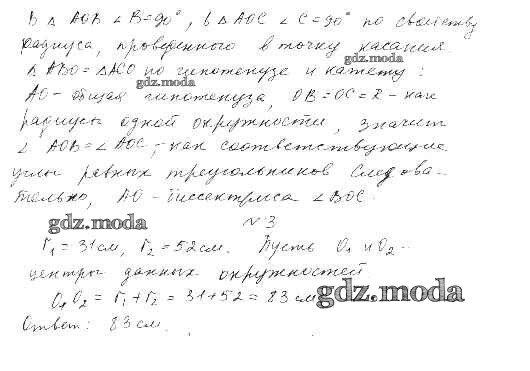 В △ AOB ∠ B=90°, в △ AOC ∠ C=90° по свойству
радиуса, проведенного в точку касания.
gdz.moda
△ ABO = △ ACO по гипотенузе и катету:
gdz.moda
AO - общая гипотенуза, OB = OC = R - как
радиусы одной окружности, значит
∠ AOB = ∠ AOC, - как соответствующие
углы равных треугольников. Следова-
тельно, AO - биссектриса ∠ BOC.
gdz.moda
№ 3
r₁ = 31 см, r₂ = 52 см. Пусть O₁ и O₂ -
центры данных окружностей.
O₁O₂ = r₁ + r₂ = 31 + 52 = 83 см
gdz.moda
Ответ: 83 см.